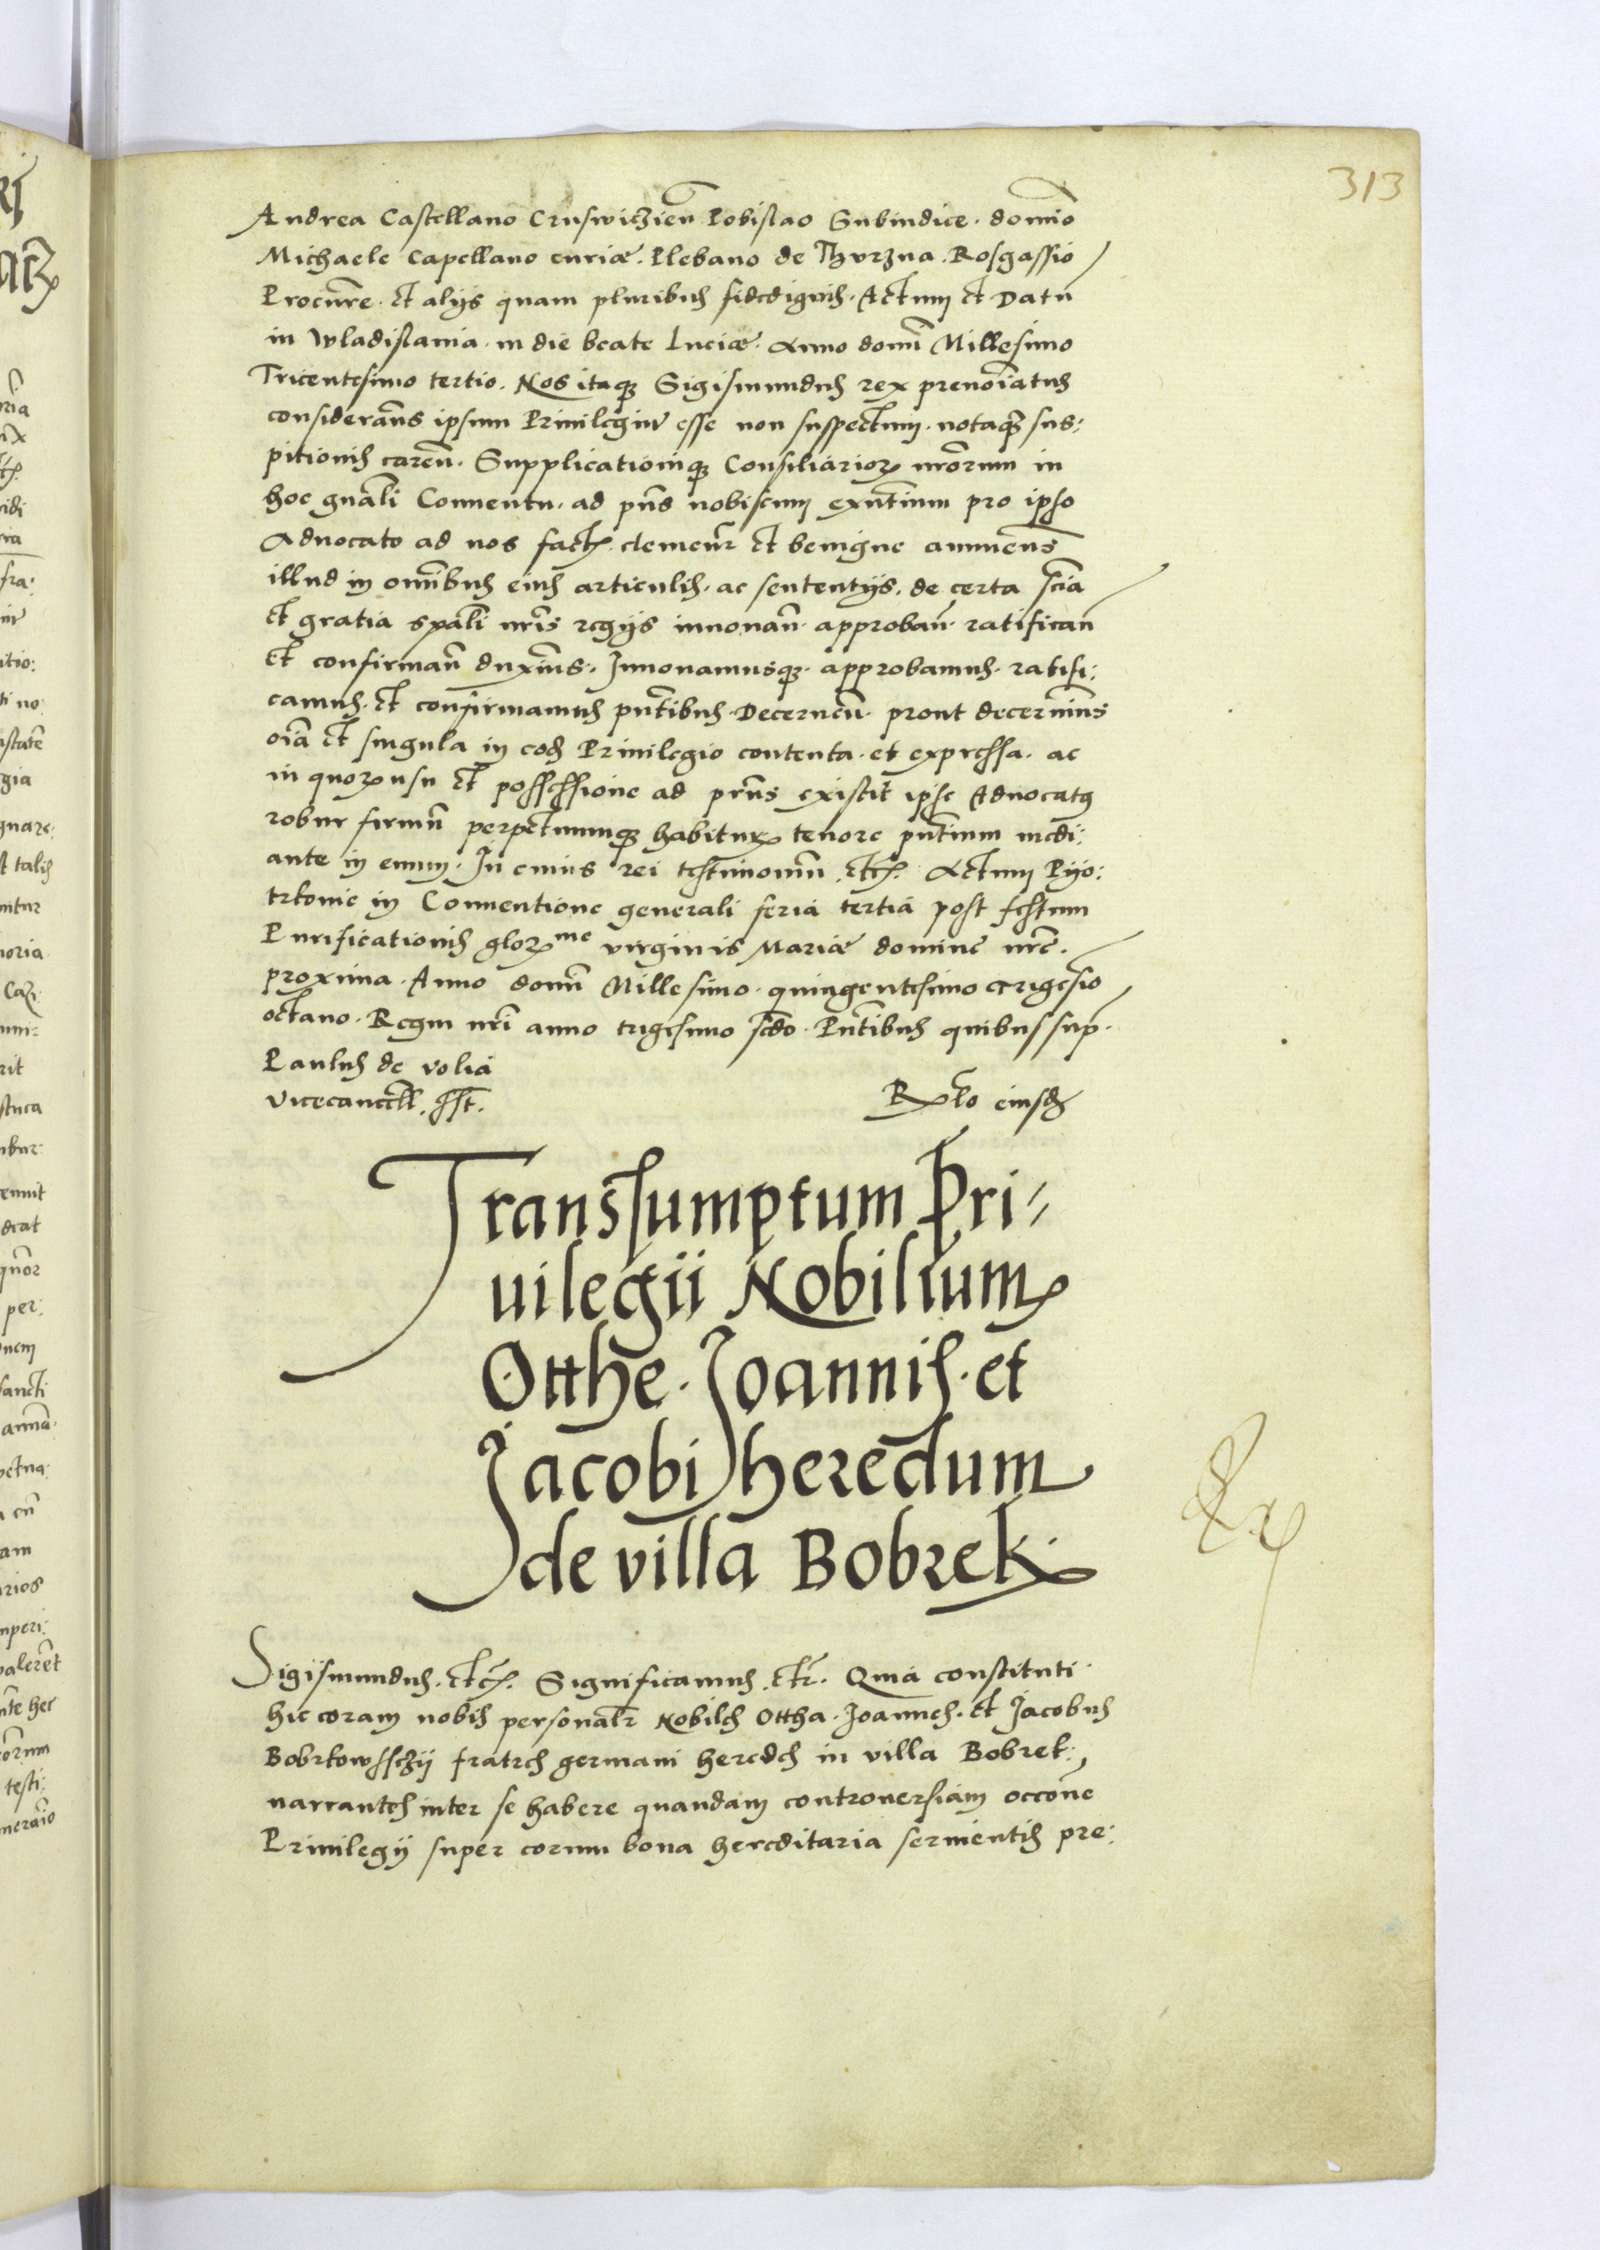 313
Andrea Castellano Cruswiczien̄ Pobislao Subiudice. domīo
Michaele Capellano curiæ. Plebano de Thvrzna. Rosgassio
Procur̄re. et alijs quam pluribus fidedignis. Actum et Datū
in Wladislauia. in die beate Luciæ. Anno domī Millesimo
Tricentesimo tertio. Nos itaq; Sigismundus rex prenoīatus
considerans ipsum Priuilegiū esse non suspectum. notaq; sus:
pitionis caren̄. Supplicationiq; Consiliarioꝝ nr̄orum in
hoc gn̄ali Conuentu. ad pn̄s nobiscum exn̄tium pro ipso
Aduocato ad nos fact. clemen̄r et benigne annuens
illud in om̄ibus eius articulis. ac sententijs. de certa sciā
et gratia sp̄ali nr̄is regijs innouan̄. approban̄. ratifican̄
et confirman̄ duxim̄us. Innouamusq;. approbamus. ratifi:
camus. et confirmamus pn̄tibus. Decernen̄. prout decernim̄us
oīa et singula in eod Priuilegio contenta. et expressa. ac
in quoꝝ usu et possessione ad prn̄s existit ipse Aduocatus
robur firmū perpetuumq; habituꝝ tenore pn̄tium medi:
ante in euum. In cuius rei testimoniū etc. Actum Pijo:
trkouie in Conuentione generali feria tertia post festum
Purificationis gloꝝme virginis Mariæ domine nr̄e.
proxima. Anno domī Millesimo. quingentesimo trigesīo
octauo. Regni nr̄i anno trigesimo scdo. Pn̄tibus quibus sup.
Paulus de volia
Vicecancell. sst.
Rlo eiusd
Transsumptum Pri/
uilegii Nobilium
Otthe. Joannis. et
Jacobi heredum
de villa Bobrek.
Sigismundus. etc. Significamus. etc. Quia constituti
hic coram nobis personalr̄ Nobiles Ottha. Joannes. et Jacobus
Bobrkowssczij fratres germani heredes in villa Bobrek.
narrantes inter se habere quandam controuersiam occon̄e
Priuilegij super eorum bona hereditaria seruientis pre: